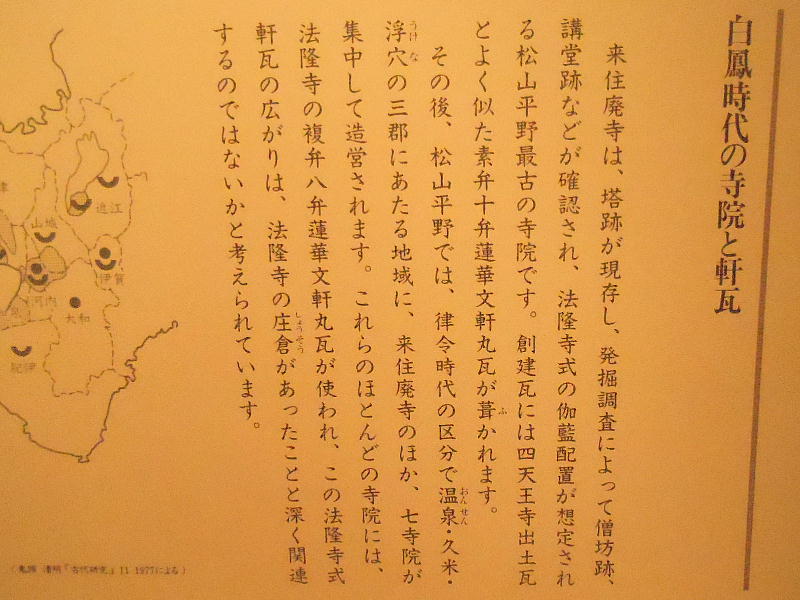 白鳳時代の寺院と軒瓦
来住廃寺は、塔跡が現存し、発掘調査によって僧坊跡、
講堂跡などが確認され、法隆寺式の伽藍配置が想定され
る松山平野最古の寺院です。創建瓦には四天王寺出土瓦
とよく似た素弁十弁蓮華文軒丸瓦が葺かれます。
ふ
その後、松山平野では、律令時代の区分で温泉・久米・
おんせん
浮穴の三郡にあたる地域に、来住廃寺のほか、七寺院が
うけな
集中して造営されます。これらのほとんどの寺院には、
法隆寺の複弁八弁蓮華文軒丸瓦が使われ、この法隆寺式
軒瓦の広がりは、法隆寺の庄倉があったことと深く関連
しょうそう
するのではないかと考えられています。
近江
山城
伊賀
河内
大和
紀伊
『古代研究』11 1977による)